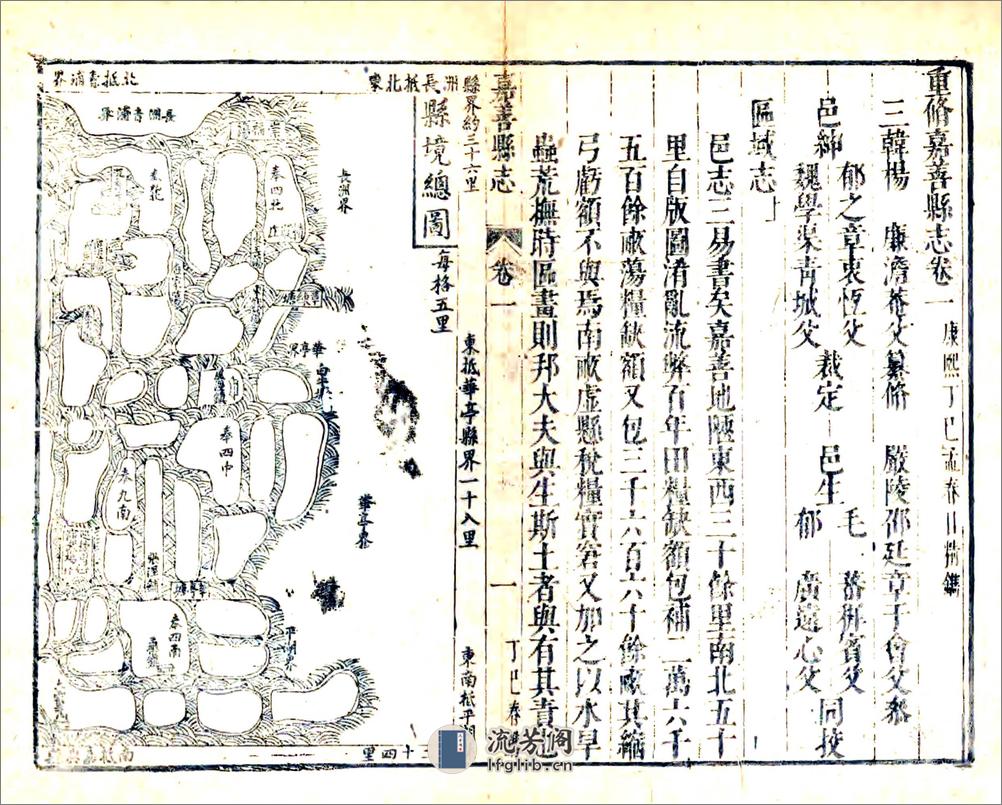 重脩嘉善縣志卷一 康熙丁巳孟春日
三韓楊 廉澹菴父纂脩 嚴陵邵廷章子會父
邑紳 郁之章衷恆父
魏學渠青城父
裁定
邑生 毛 蕃稚賓父
郁 廣遠心父
同挍
區域志上
邑志三易書矣嘉善地陿東西三十餘里南北五十
里自版圖淆亂流弊百年田糧缺額包補二萬六千
五百餘畝蕩糧缺額又包三千六百六十餘畝其縮
弓虧額不與焉南畝虛懸稅糧實窘又加之以水旱
蟲荒撫時區畫則邦大夫與生斯土者與有其責
嘉善縣志
卷一
一
丁巳春
東北抵長洲縣界約三十六里
東抵華亭縣界一十八里
東南抵平湖
縣境總圖
每格五里
北抵青浦界
長洲青浦界
長洲界
奉四北
華亭界
奉四中
華亭界
奉九南
奉四南
平湖界
南抵嘉興
二十四里
流芳阁
lfglib.cn